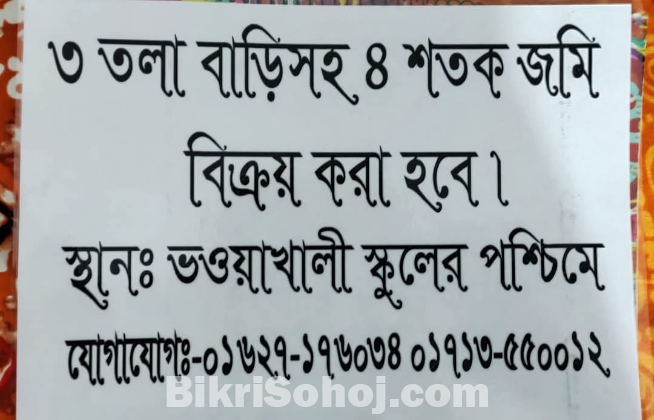 ৩ তলা বাড়িসহ ৪ শতক জমি
বিক্রয় করা হবে।
স্থানঃ ভওয়াখালী স্কুলের পশ্চিমে
যোগাযোগঃ-০১৬২৭-১৭৬০৩৪ ০১৭১৩-৫৫০০১২
BikriSohoj.com